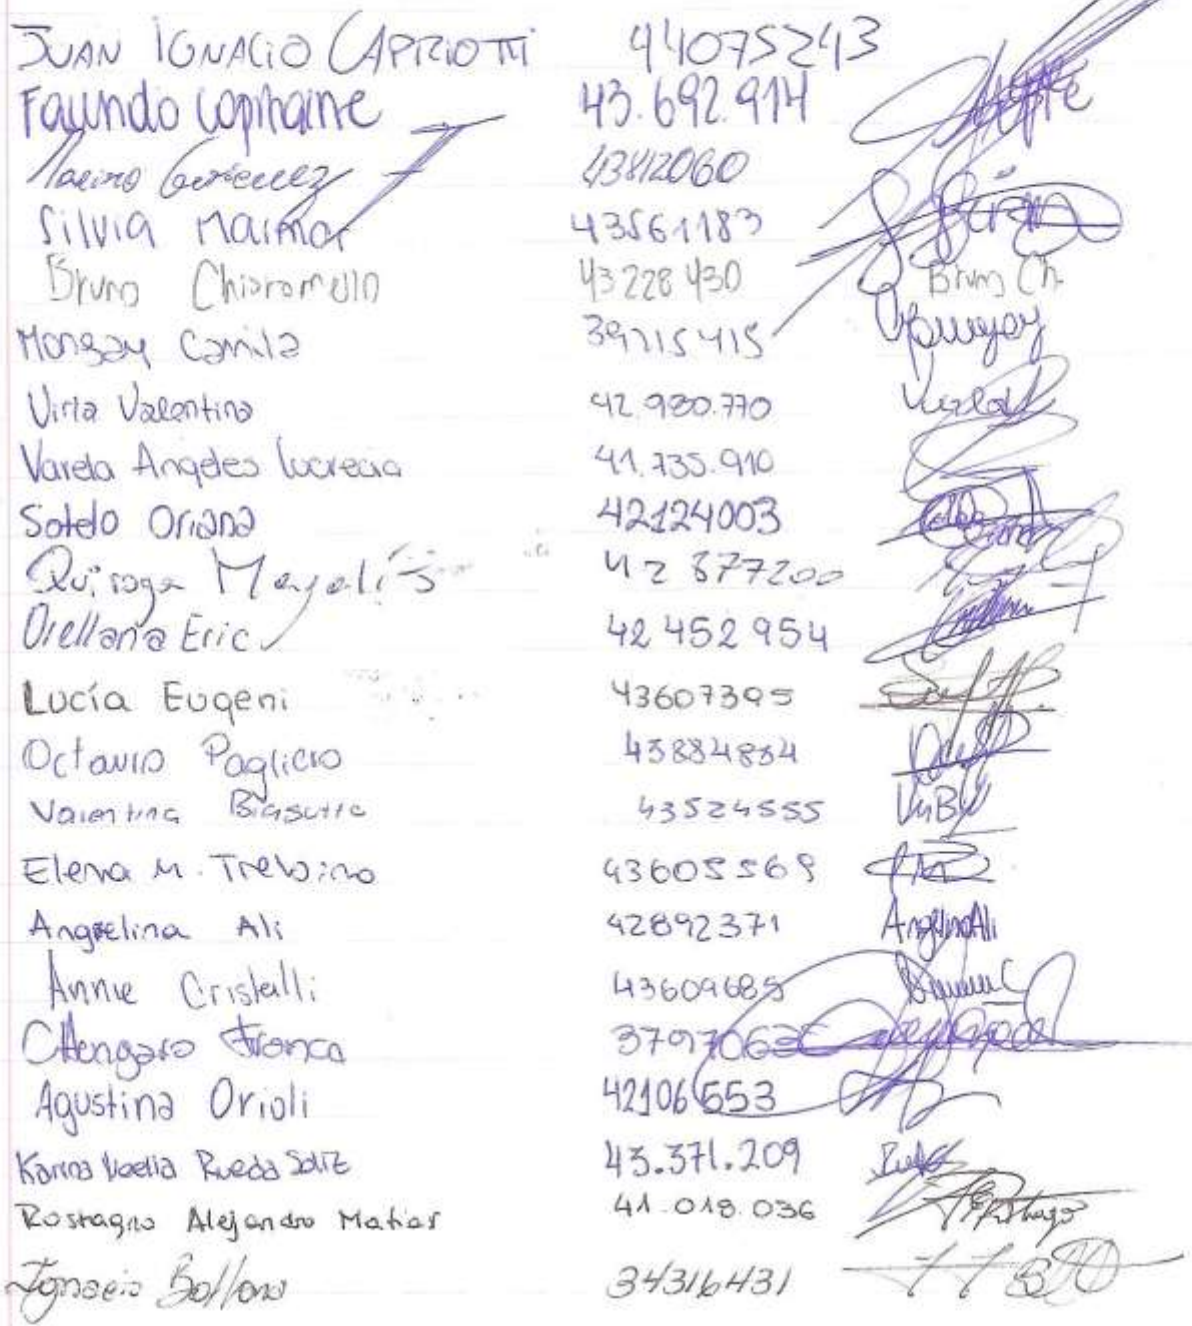 JUAN IGNACIO CAPRIOTTI 44075243
Facundo Capitaine 43.692.914
43812060
Silvia Marmor 43561183
Bruno Chiaromello 43 228 430 Bruno Ch.
Mongay Camila 39715415 Mongay
Virla Valentina 42.980.770
Varela Angeles Lucrecia 41.735.910
Sotelo Oriana 42124003
Quiroga Magalis 42 877200
Orellana Eric 42 452 954
Lucía Eugeni 43607395
Octavio Pagliero 43884834
Valentina Biasutto 43524555
Elena M. Trebino 43605569
Angelina Ali 42892371 Angelina Ali
Annie Cristalli 43609685
Franca
Agustina Orioli 42106553
Karina Noelia Rueda Soliz 43.371.209
Rostagno Alejandro Matias 41.018.036
Ignacio 34316431